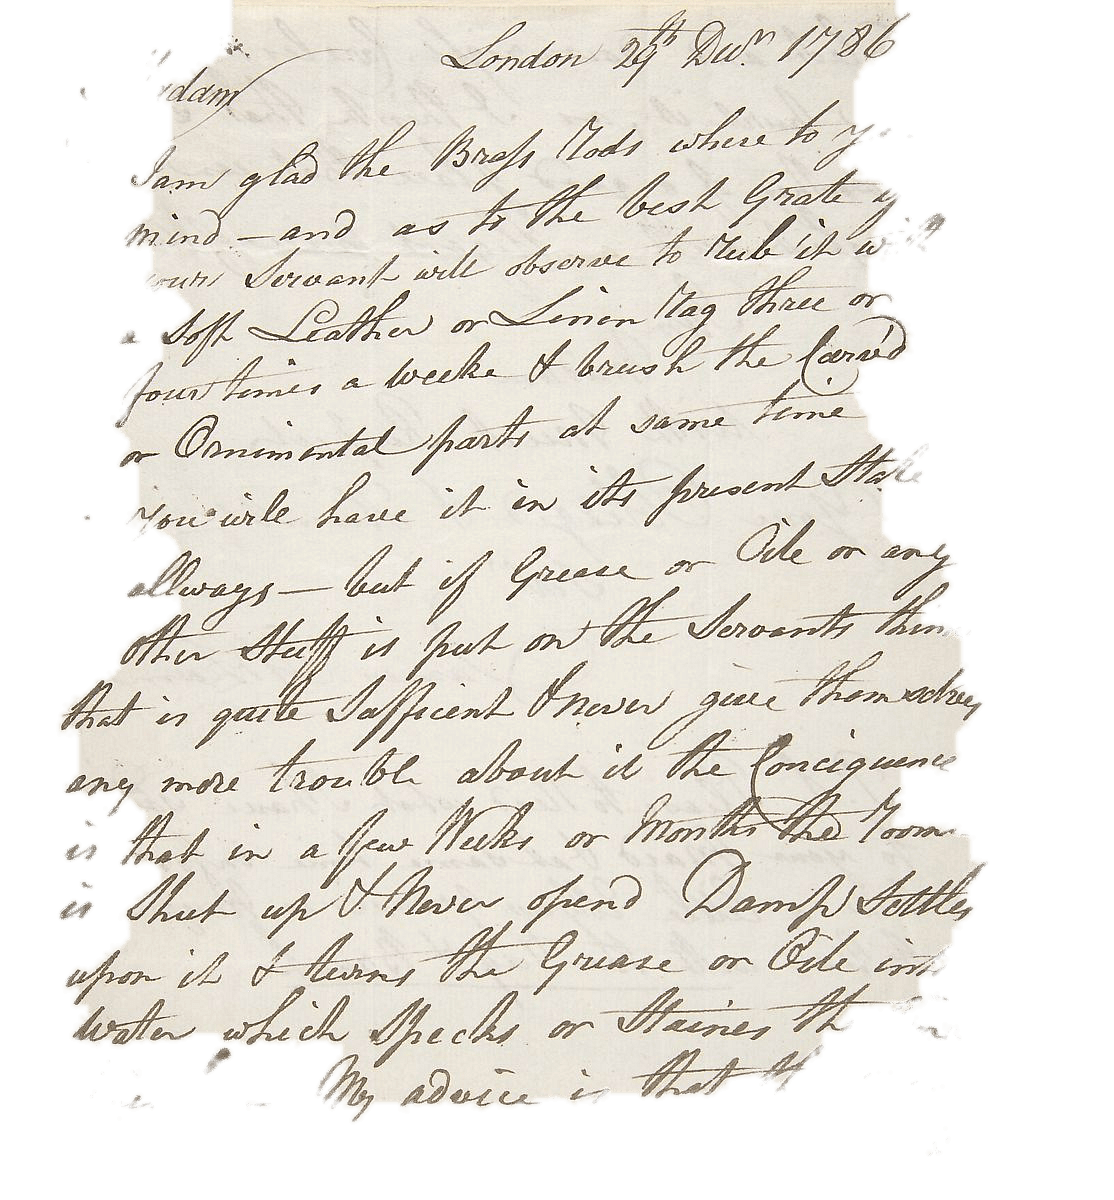 London 29th Decr. 1786
I am glad the Brass Rods where to
mind — and as to the best Grate
your Servant will observe to rub it with
a soft Leather or Linin Rag three or
four times a weeke & brush the Carv'd
or Ornimental parts at same time
You will have it in its present State
allways — but if Grease or Oile or any
other Stuff is put on the Servants think
that is quite Sufficent & never give themselves
any more trouble about it the Conciquence
is that in a few Weeks or Months the Room
is Shut up & Never opend Damp Settles
upon it & turns the Grease or Oile into
Water which Specks or Staines
My advice is that